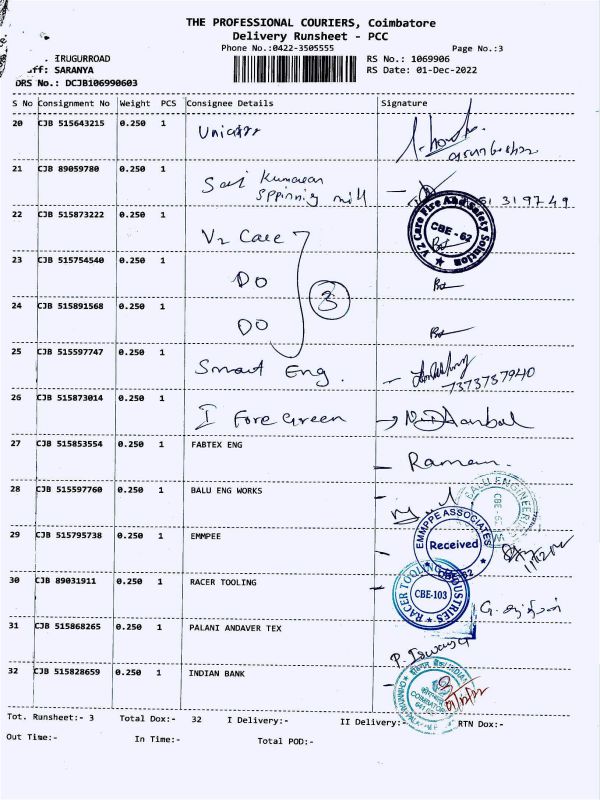 THE PROFESSIONAL COURIERS, Coimbatore
Delivery Runsheet - PCC
Phone No.:0422-3505555
Page No.:3
IRUGURROAD
RS No.: 1069906
ff: SARANYA
RS Date: 01-Dec-2022
DRS No.: DCJB106990603
S No Consignment No Weight PCS Consignee Details Signature
20 CJB 515643215 0.250 1
21 CJB 89059780 0.250 1 Sai Kumaran
Sppinnig mill
319749
22 CJB 515873222 0.250 1 V2 Care
V2 Care Fire And Safety Solution
CBE - 62
23 CJB 515754540 0.250 1 DO
3
24 CJB 515891568 0.250 1 DO
25 CJB 515597747 0.250 1 Smart Eng.
7373737940
26 CJB 515873014 0.250 1 I Fore Green
27 CJB 515853554 0.250 1 FABTEX ENG
Raman.
28 CJB 515597760 0.250 1 BALU ENG WORKS
BALU ENGINEERING
29 CJB 515795738 0.250 1 EMMPEE
EMMPPE ASSOCIATES
Received
30 CJB 89031911 0.250 1 RACER TOOLING
RACER TOOLING INDUSTRIES
CBE-103
31 CJB 515868265 0.250 1 PALANI ANDAVER TEX
32 CJB 515828659 0.250 1 INDIAN BANK
Tot. Runsheet:- 3 Total Dox:- 32 I Delivery:- II Delivery:- RTN Dox:-
Out Time:- In Time:- Total POD:-